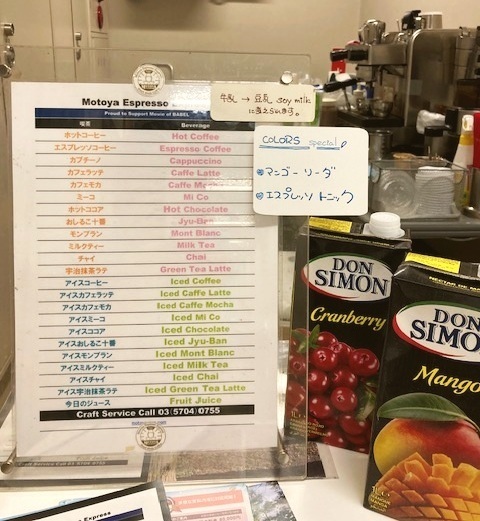 Motoya Espresso
Proud to Support Movie of BABEL
喫茶 Beverage
ホットコーヒー Hot Coffee
エスプレッソコーヒー Espresso Coffee
カプチーノ Cappuccino
カフェラッテ Caffe Latte
カフェモカ Caffe
ミーコ Mi Co
ホットココア Hot Chocolate
おしるこ十番 Jyu-Ban
モンブラン Mont Blanc
ミルクティー Milk Tea
チャイ Chai
宇治抹茶ラテ Green Tea Latte
アイスコーヒー Iced Coffee
アイスカフェラッテ Iced Caffe Latte
アイスカフェモカ Iced Caffe Mocha
アイスミーコ Iced Mi Co
アイスココア Iced Chocolate
アイスおしるこ十番 Iced Jyu-Ban
アイスモンブラン Iced Mont Blanc
アイスミルクティー Iced Milk Tea
アイスチャイ Iced Chai
アイス宇治抹茶ラテ Iced Green Tea Latte
今日のジュース Fruit Juice
Craft Service Call 03(5704)0755
牛乳 → 豆乳 soy milk
に変えられます。
COLORS special
マンゴー ソーダ
エスプレッソ トニック
DON
SIMON
Cranberry
DON
SIMO
Mango